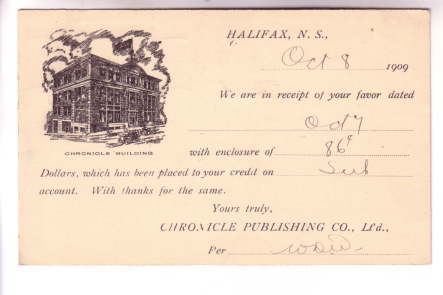 HALIFAX, N. S.,
Oct 8 1909
We are in receipt of your favor dated
Oct 7
CHRONICLE BUILDING
with enclosure of 86
Dollars, which has been placed to your credit on Sub
account. With thanks for the same.
Yours truly,
CHRONICLE PUBLISHING CO., Lt'd.,
Per